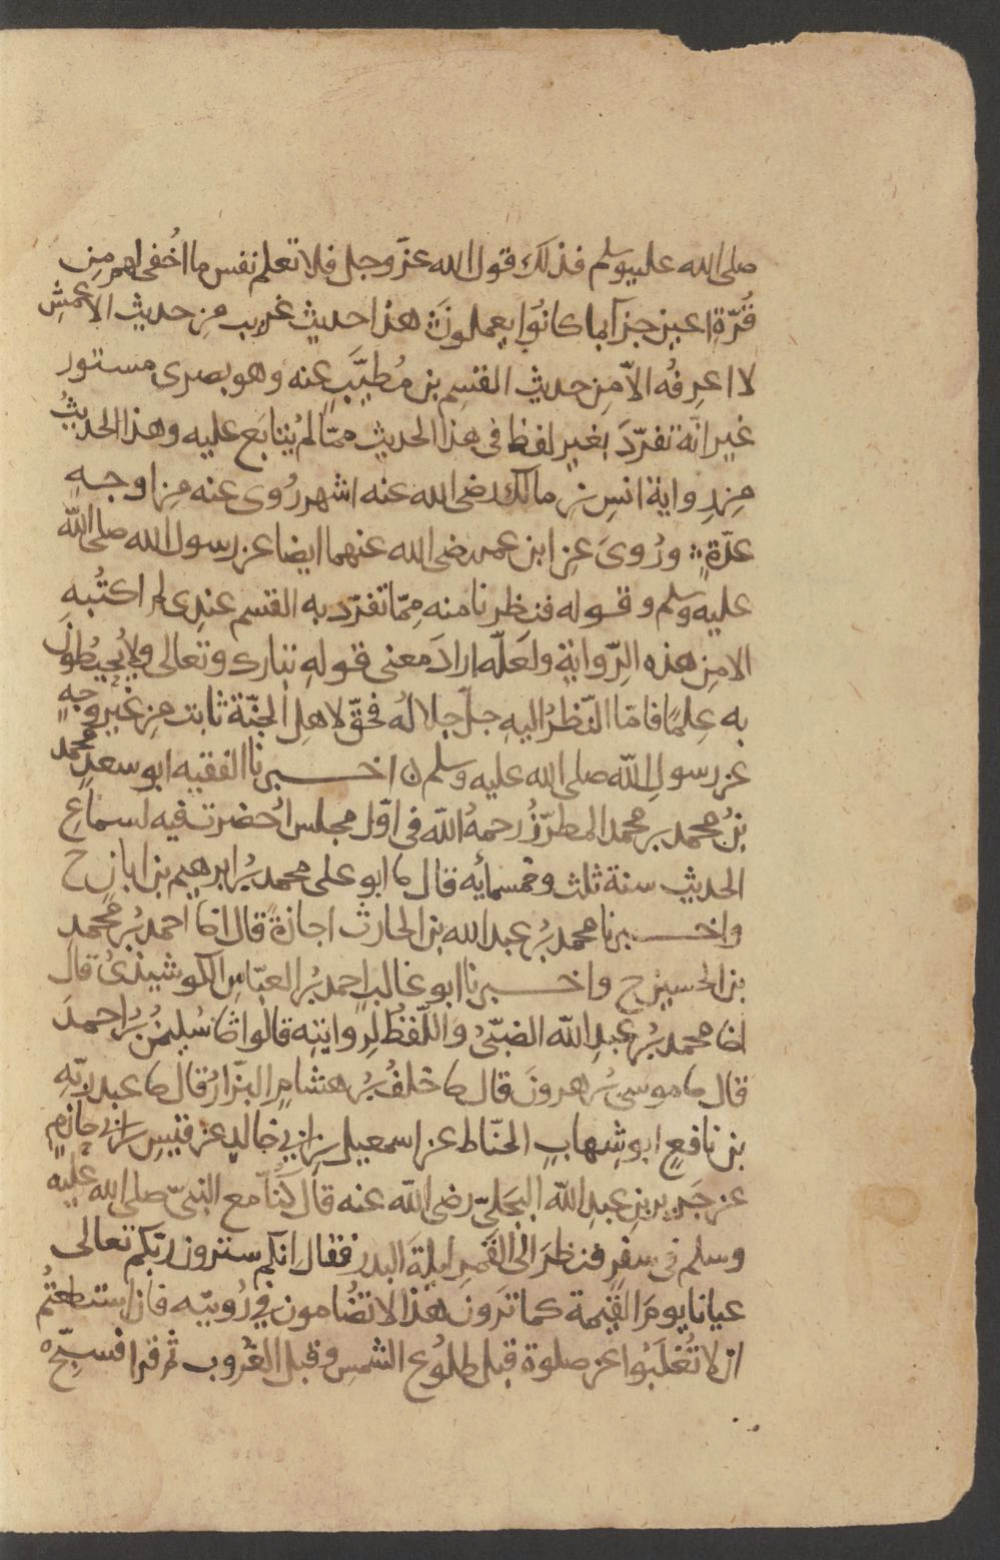 صلى الله عليه وسلم فذلك قول الله عزّ وجل فلا تعلم نفس ما اُخفى لهم مِن
قُرّةِ اعين جزآ بما كانوُا يعملونَ هذا حديث غريب مِن حديث الاعمشِ
لا اعرِفُه الاّ مِن حديث القسِم بن مُطيَّبٍ عنه وهو بصرى مستور
غير انّه تفرّدَ بغير لفظ فى هذا الحديث ممّا لم يُتابَع عليه وهذا الحديثُ
مِن رِواية انسِ بن مالك رضى الله عنه اشهر رُوى عنه مِن اوجهٍ
عدّةٍ ورُوىَ عنِ ابن عمر رضى الله عنهما ايضا عن رسول الله صلى الله
عليه وسلم وقوله فنظرنا منه مِمّا تفرّد به القسم عندِى لم اكتُبهِ
الا مِن هذه الرِّوايةِ ولعَلّه ارادَ معنى قولهِ تبارك وتعالى ولا يُحيطُونَ
به عِلمًا فامّا النّظرُ اليهِ جلّ جلالهُ فحقّ لاهلِ الجنّة ثابت مِن غيرِ وجهٍ
عن رسولِ الله صلى الله عليه وسلم ن اخبرنا الفقيه ابو سعدٍ محمد
بنُ محمد بن محمد المطرّزُ رحمهُ الله فى اوّل مجلس اُحضرت فيه لسماعِ
الحديث سنة ثلث وخمسمائه قال نا ابو على محمد بنُ ابرهيم بن ابان ح
واخبرنا محمد بنُ عبد الله بن الحارث اجازةً قال انا احمد بنُ محمدِ
بن الحسين ح واخبرنا ابو غالب احمد بنُ العبّاس الكوشيذىُ قال
انا محمد بنُ عبدِ الله الضبّىُ واللّفظُ لِروايتهِ قالوا ثنا سُليمنُ بنُ احمدَ
قال نا موسى بن هرونَ قال نا خلفُ بنُ هشامٍ البزّارُ قال نا عبد ربّهِ
بن نافعٍ ابو شِهابٍ الحنّاط عن اسمعيل بن ابى خالدٍ عن قيسِ بن ابى حازمٍ
عن جَرير بنِ عبدِ الله البجَلىّ رضى الله عنه قال كُنّا مع النبىّ صلى الله عليه
وسلم فى سفرٍ فنظرَ الى القمرِ ليلةَ البدر فقال انكم سترون ربّكم تعالى
عيانا يومَ القيمة كما ترَونَ هذا لا تضُامون فى رُويتِه فان استطعتُم
ان لا تُغلَبُوا عن صلوة قبل طلوُع الشمسِ وقبل الغُروب ثم قرا فسبّح